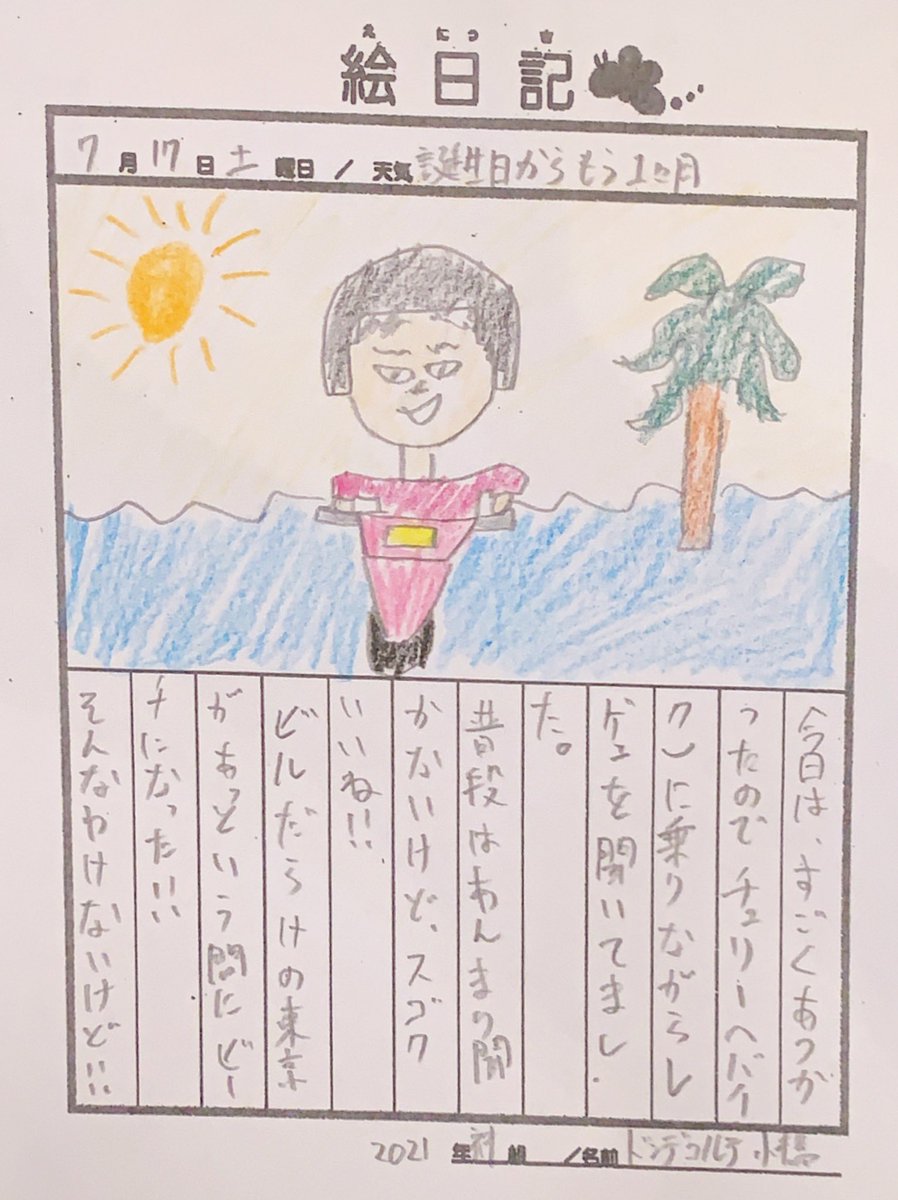 絵日記
えにっき
7月17日土曜日/天気 誕生日からもう1ヶ月
今日は、すごくあつか
ったのでチェリー(バイ
ク)に乗りながらレ
ゲエを聞いてまし
た。
昔段はあんまり聞
かないけど、スゴク
いいね!!
ビルだらけの東京
があっという間にビー
チになった!!
そんなわけないけど!!
2021年 組 /名前 ドンデコルテ 小橋